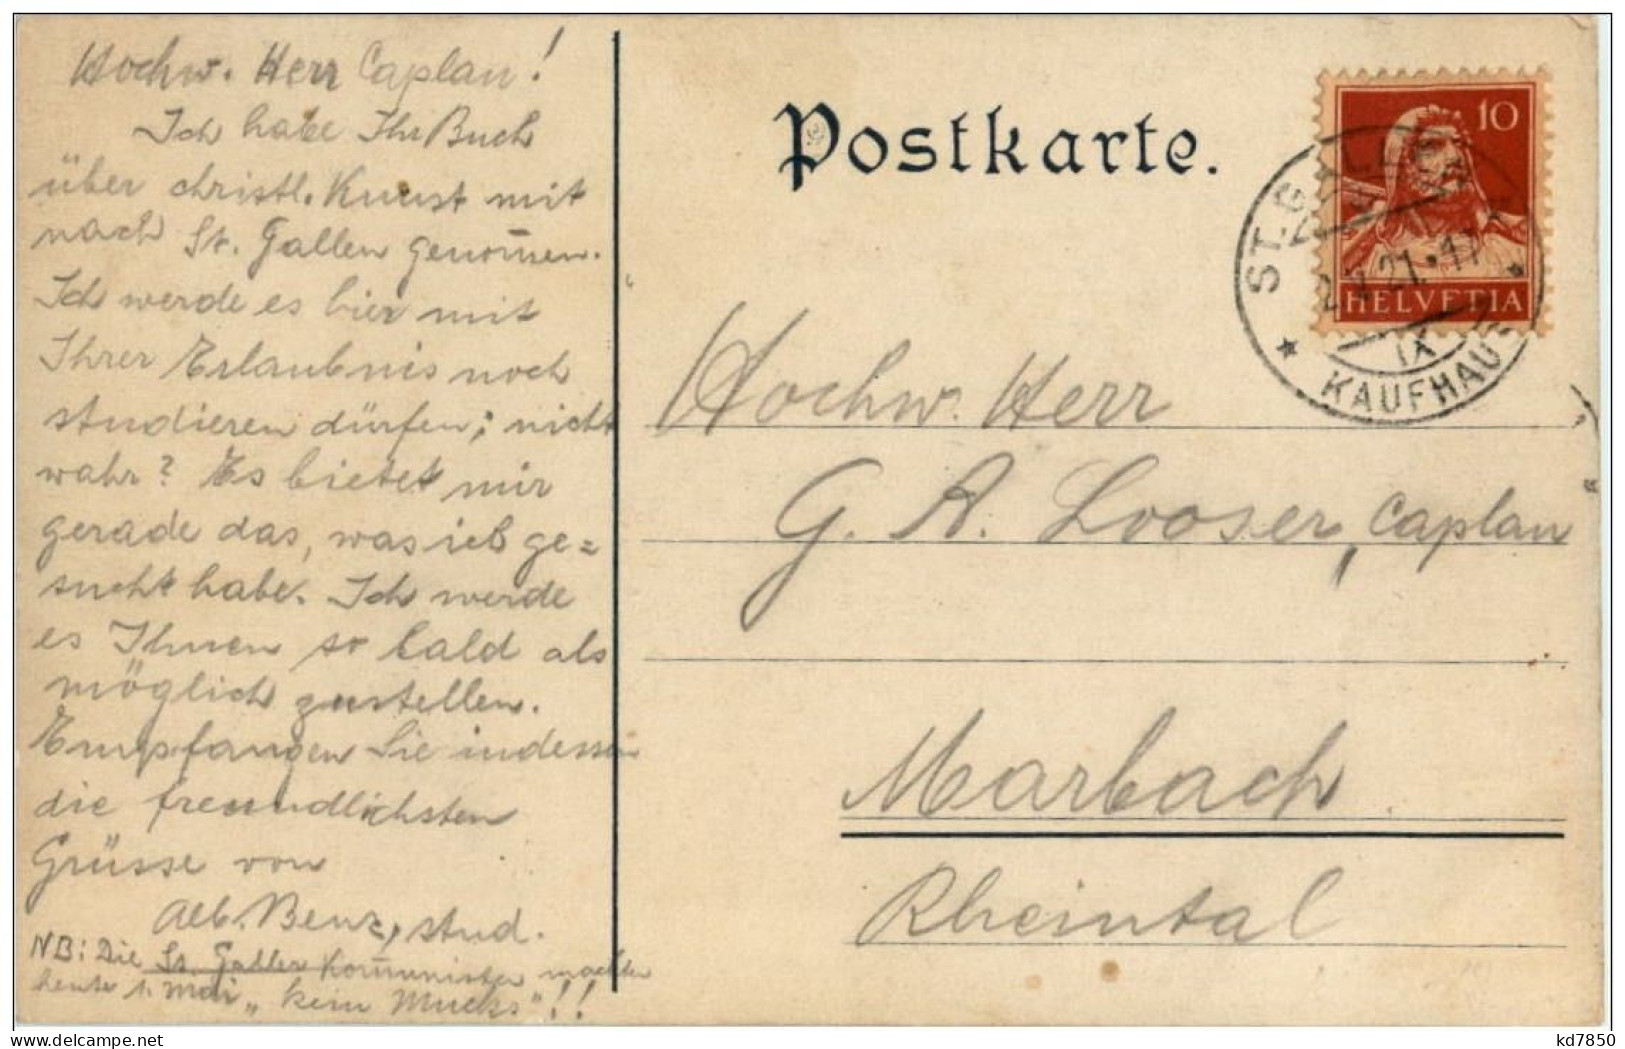 Hochw. Herr Caplan!
Ich habe Ihr Buch
über christl. Kunst mit
nach St. Gallen genom̄en.
Ich werde es hier mit
Ihrer Erlaubnis noch
studieren dürfen; nicht
wahr? Es bietet mir
gerade das, was ich ge=
sucht habe. Ich werde
es Ihnen so bald als
möglich zustellen.
Empfangen Sie indessen
die freundlichsten
Grüsse von
Alb. Benz, stud.
NB: Die St. Galler Kom̄unisten machten
heute 1. Mai „kein Mucks"!!
Postkarte.
10
HELVETIA
ST. GALLEN
2.V.21.11
IX
KAUFHAUS
Hochw. Herr
G. A. Looser, Caplan
Marbach
Rheintal
delcampe.net
kd7850